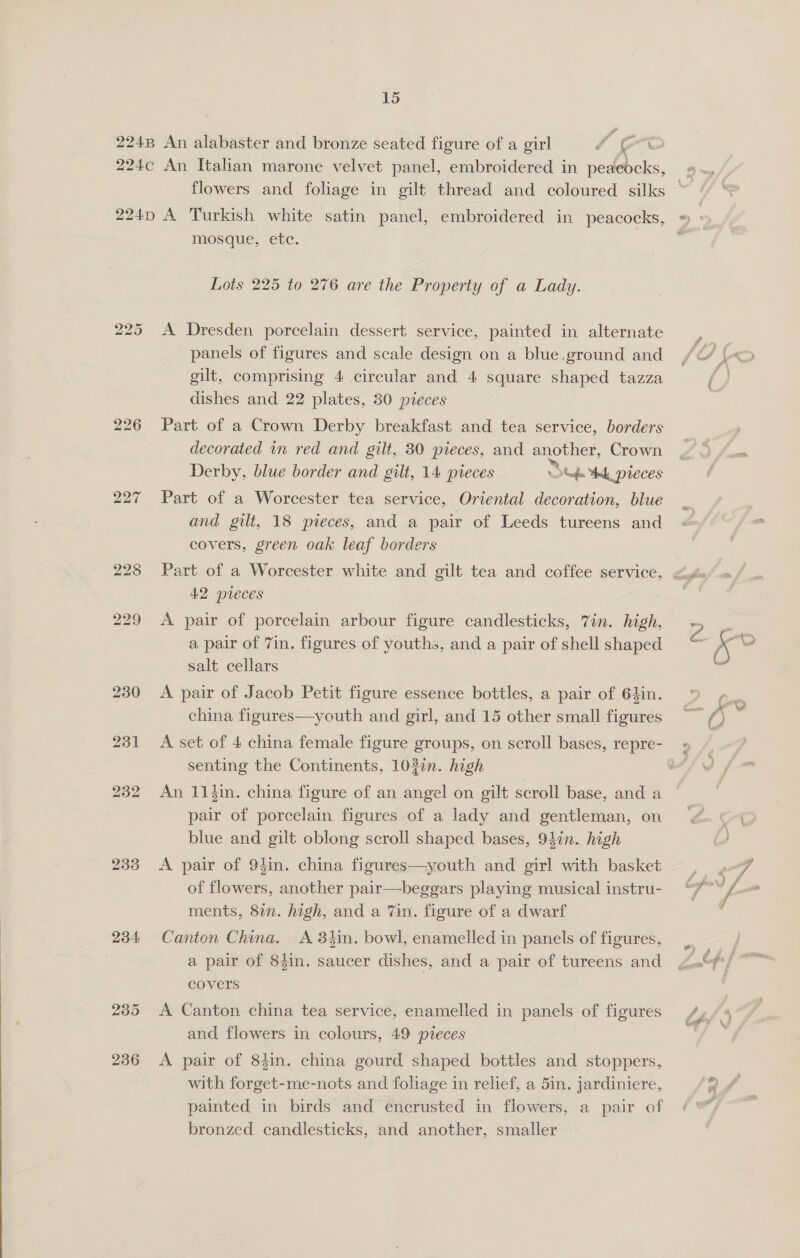 15
224B An alabaster and bronze seated figure of a girl
224C An Italian marone velvet panel, embroidered in peacocks,
flowers and foliage in gilt thread and coloured silks
224D A Turkish white satin panel, embroidered in peacocks,
mosque, etc.
Lots 225 to 276 are the Property of a Lady.
225 A Dresden porcelain dessert service, painted in alternate
panels of figures and scale design on a blue ground and
gilt, comprising 4 circular and 4 square shaped tazza
dishes and 22 plates, 30 pieces
226 Part of a Crown Derby breakfast and tea service, borders
decorated in red and gilt, 30 pieces, and another, Crown
Derby, blue border and gilt, 14 pieces pieces
227 Part of a Worcester tea service, Oriental decoration, blue
and gilt, 18 pieces, and a pair of Leeds tureens and
covers, green oak leaf borders
228 Part of a Worcester white and gilt tea and coffee service,
42 pieces
229 A pair of porcelain arbour figure candlesticks, 7in. high,
a pair of 7in. figures of youths, and a pair of shell shaped
salt cellars
230 A pair of Jacob Petit figure essence bottles, a pair of 6½in.
china figures—youth and girl, and 15 other small figures
231 A set of 4 china female figure groups, on scroll bases, repre-
senting the Continents, 10¾in. high
232 An 11½in. china figure of an angel on gilt scroll base, and a
pair of porcelain figures of a lady and gentleman, on
blue and gilt oblong scroll shaped bases, 9½in. high
233 A pair of 9½in. china figures—youth and girl with basket
of flowers, another pair—beggars playing musical instru-
ments, 8in. high, and a 7in. figure of a dwarf
234 Canton China. A 3½in. bowl, enamelled in panels of figures,
a pair of 8½in. saucer dishes, and a pair of tureens and
covers
235 A Canton china tea service, enamelled in panels of figures
and flowers in colours, 49 pieces
236 A pair of 8½in. china gourd shaped bottles and stoppers,
with forget-me-nots and foliage in relief, a 5in. jardiniere,
painted in birds and encrusted in flowers, a pair of
bronzed candlesticks, and another, smaller